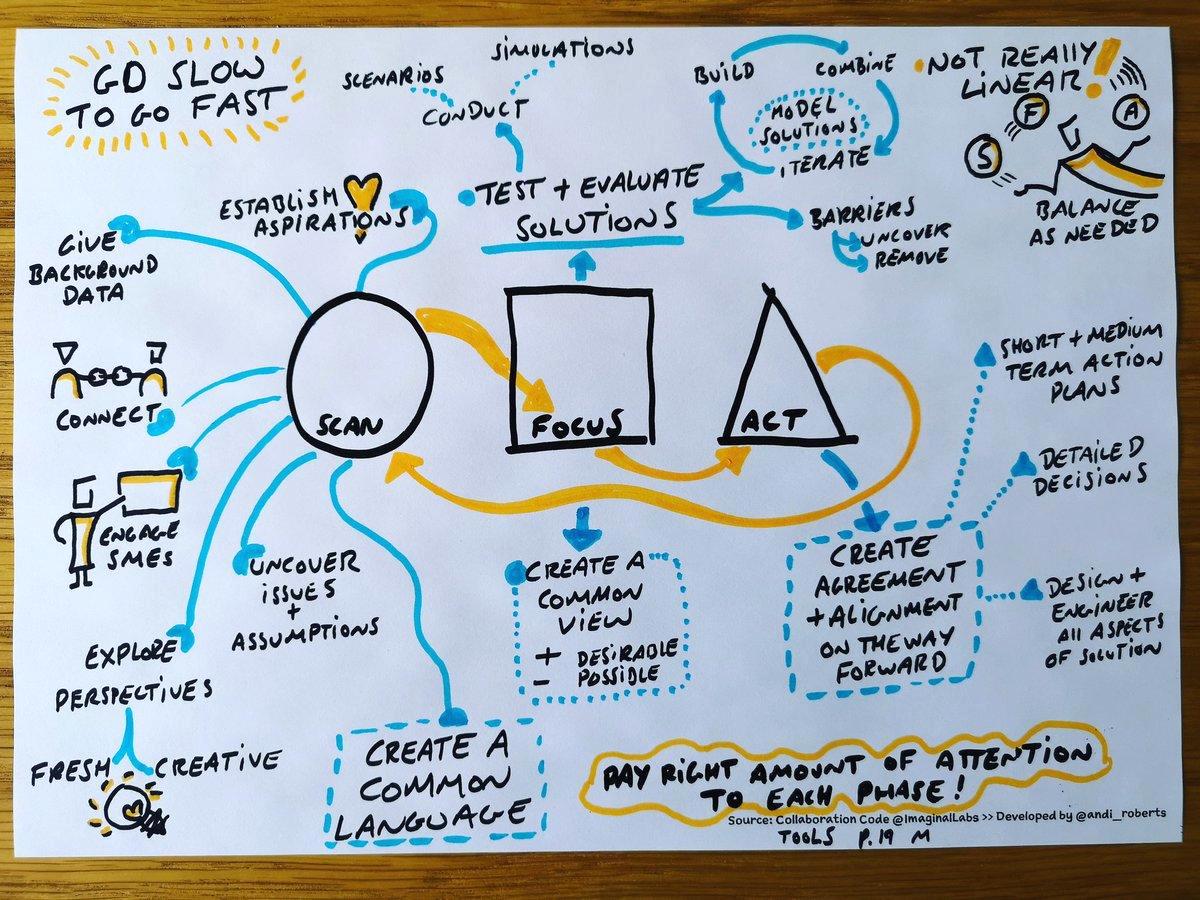 GO SLOW
TO GO FAST
SIMULATIONS
SCENARIOS
CONDUCT
BUILD
COMBINE
MODEL
SOLUTIONS
ITERATE
NOT REALLY
LINEAR!
S
F
A
BALANCE
AS NEEDED
ESTABLISH
ASPIRATIONS
TEST + EVALUATE
SOLUTIONS
BARRIERS
UNCOVER
REMOVE
GIVE
BACKGROUND
DATA
CONNECT
ENGAGE
SMEs
SCAN
FOCUS
ACT
SHORT + MEDIUM
TERM ACTION
PLANS
DETAILED
DECISIONS
DESIGN +
ENGINEER
All ASPECTS
OF SOLUTION
UNCOVER
ISSUES
+
ASSUMPTIONS
EXPLORE
PERSPECTIVES
FRESH - CREATIVE
CREATE A
COMMON
LANGUAGE
CREATE A
COMMON
VIEW
+ DESIRABLE
- POSSIBLE
CREATE
AGREEMENT
+ ALIGNMENT
ON THE WAY
FORWARD
PAY RIGHT AMOUNT OF ATTENTION
TO EACH PHASE!
Source: Collaboration Code @ImaginalLabs >> Developed by @andi_roberts
TOOLS P.19 M